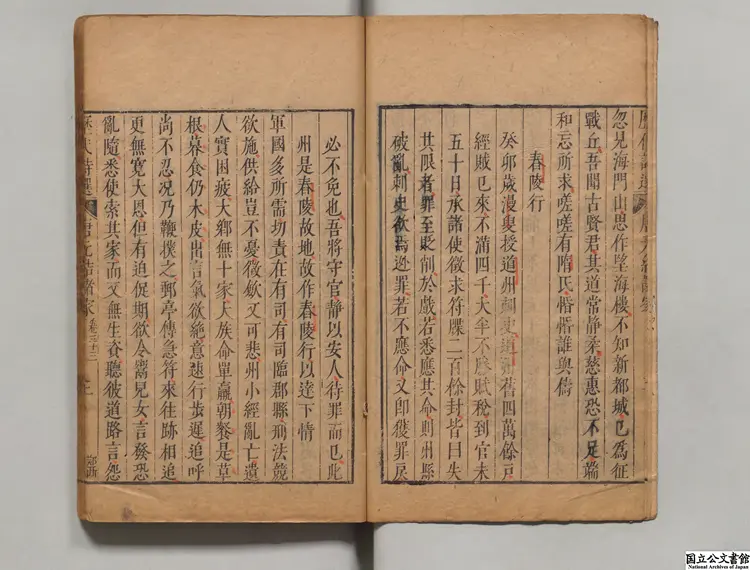 忽見海門山思作望海樓不知新都城已為征
戰丘吾聞古賢君其道常靜柔慈惠恐不足端
和忘所求嗟嗟有隋氏惛惛誰與儔
舂陵行
癸卯歲漫叟授道州刺史道州舊四萬餘戶
經賊已來不滿四千大半不勝賦稅到官未
五十日承諸使徵求符牒二百餘封皆曰失
其限者罪至貶削於戲若悉應其命則州縣
破亂刺史欲焉逃罪若不應命又即獲罪戾
必不免也吾將守官靜以安人待罪而已此
州是舂陵故地故作舂陵行以達下情
軍國多所需切責在有司有司臨郡縣刑法競
欲施供給豈不憂徵斂又可悲州小經亂亡遺
人實困疲大鄉無十家大族命單羸朝餐是草
根暮食仍木皮出言氣欲絕意速行步遲追呼
尚不忍況乃鞭撲之郵亭傳急符來往跡相追
更無寬大恩但有迫促期欲令鬻兒女言發恐
亂隨悉使索其家而又無生資聽彼道路言怨
国立公文書館
National Archives of Japan